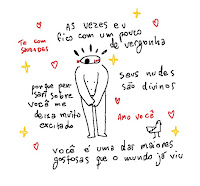 às vezes eu
fico com um pouco
de vergonha
te com
saudades
porque pen
sar sobre
você me
deixa muito
excitado
seus nudes
são divinos
amo você
você é uma das maiores
gostosas que o mundo já viu